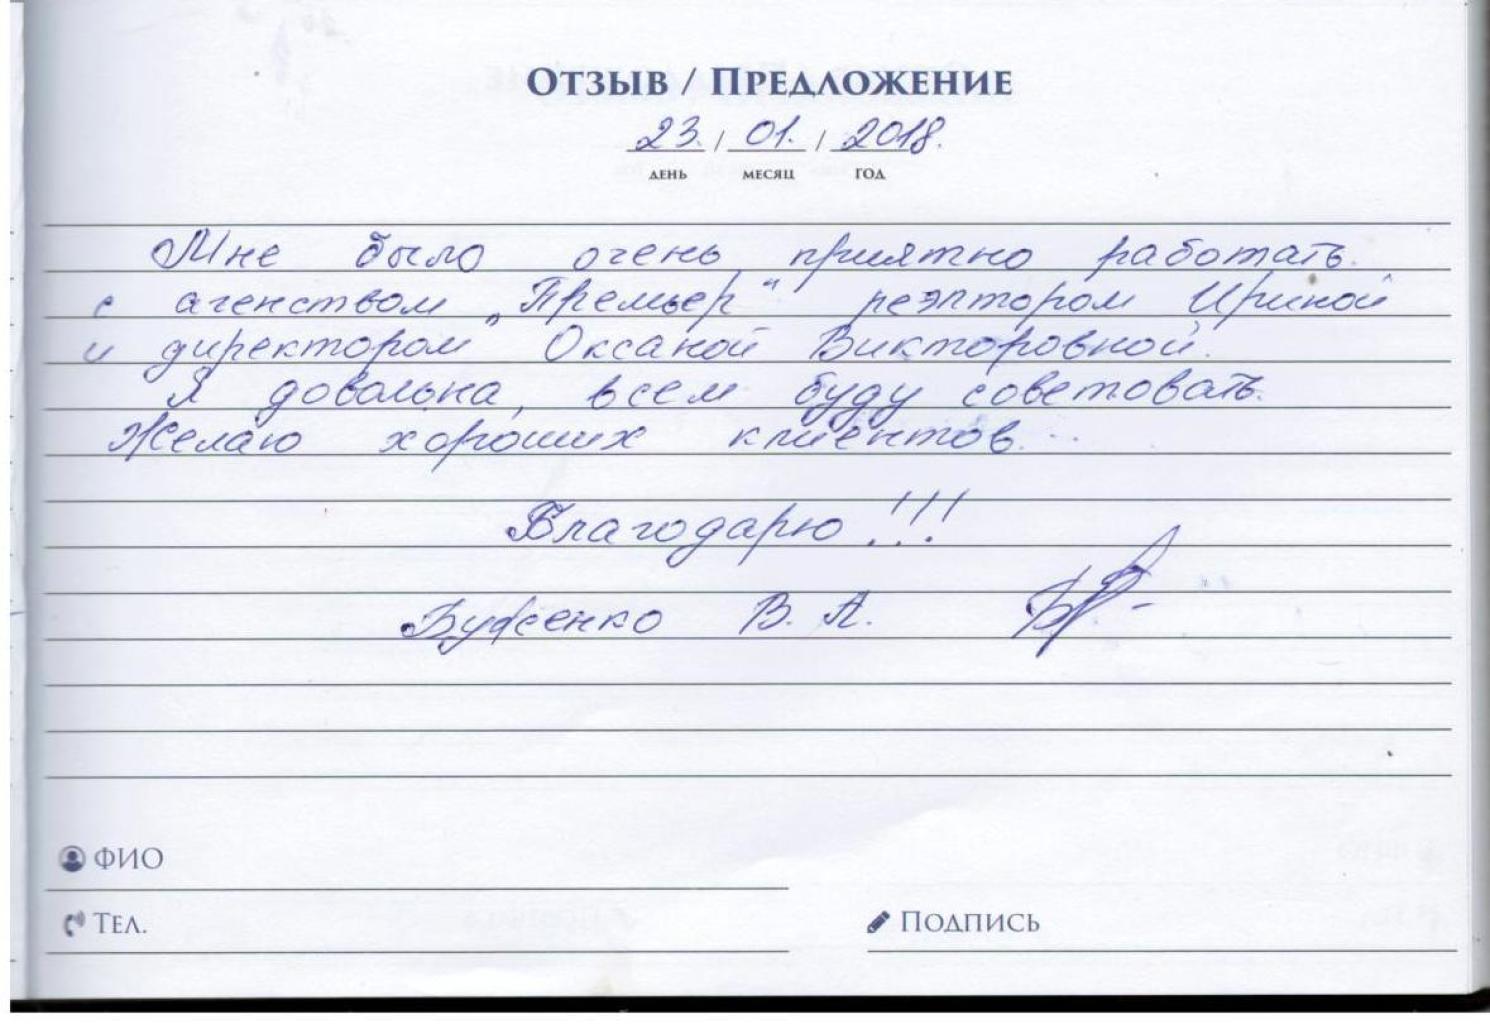 Отзыв / Предложение
23. / 01. / 2018.
день месяц год
Мне было очень приятно работать
с агенством „Премьер" реэлтором Ириной
и директором Оксаной Викторовной.
Я довольна, всем буду советовать.
Желаю хороших клиентов.
Благодарю!!!
В. А.
ФИО
Тел.
Подпись